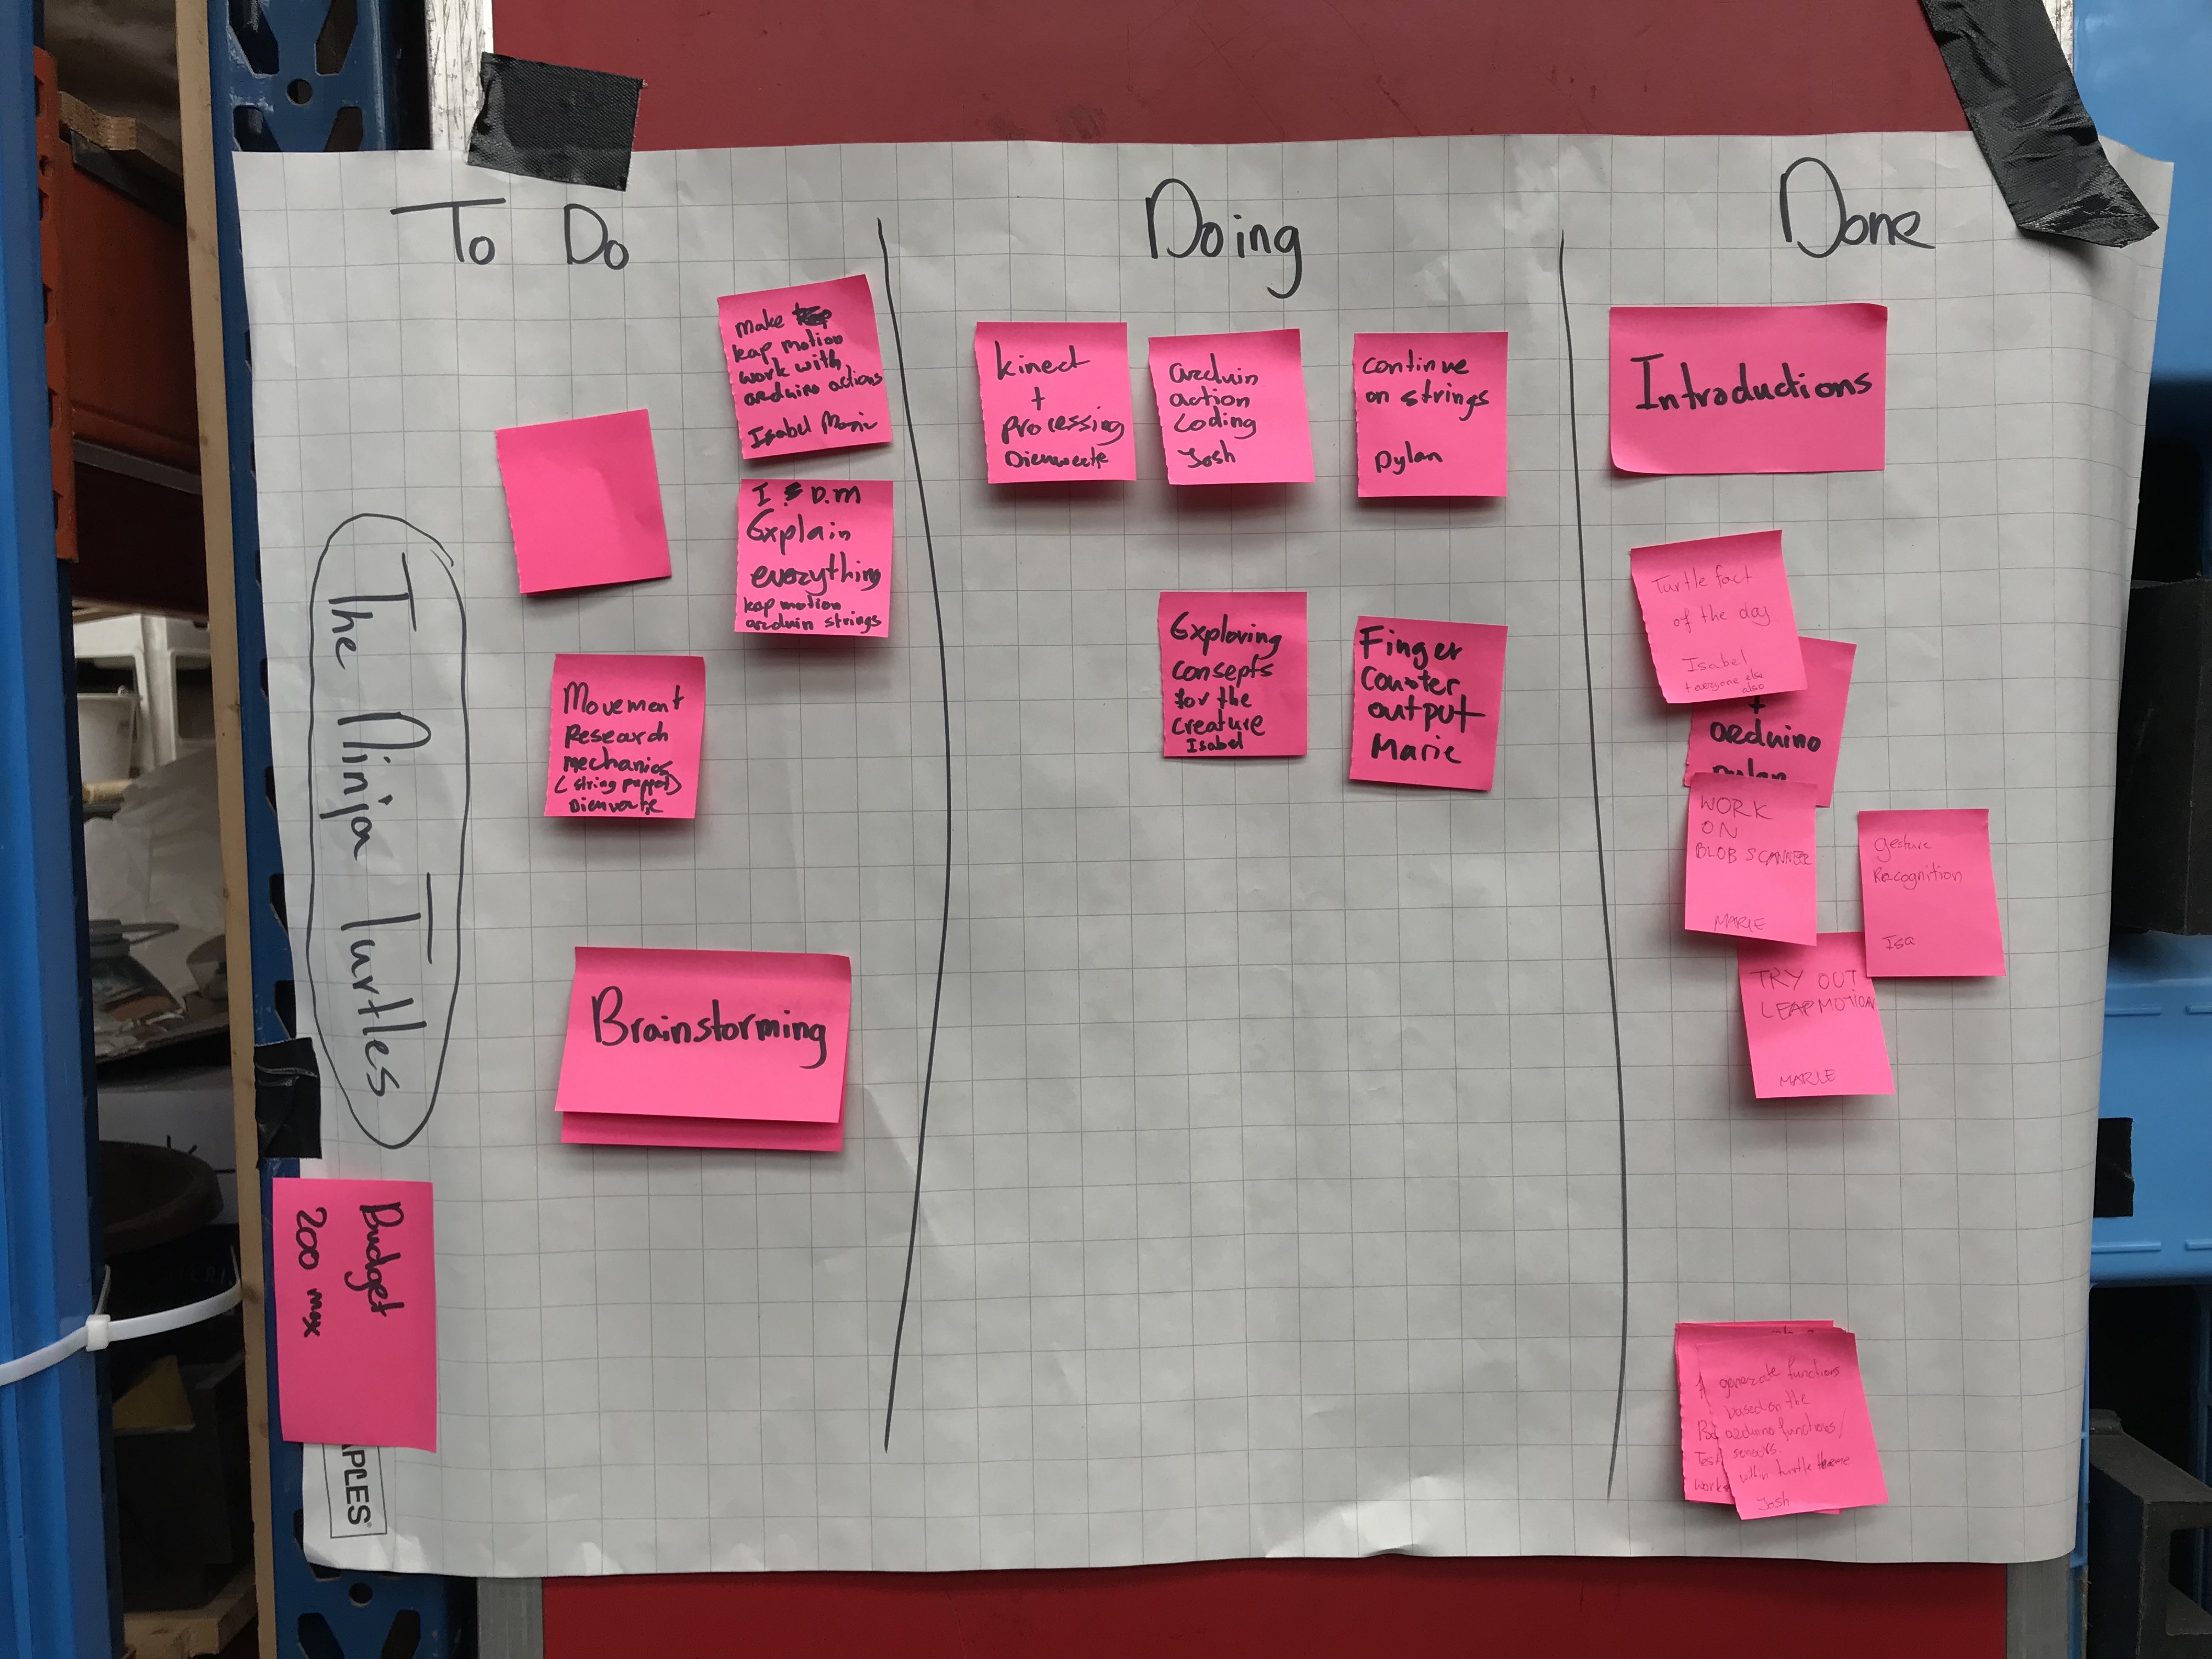 To Do
Doing
Done
The Ninja Turtles
make
leap motion
work with
arduino actions
Isabel Marie
I & D.M
Explain
everything
leap motion
arduin strings
Movement
Research
mechanics
(string puppet)
Dienwerte
Brainstorming
Budget
200 max
APLES
kinect
+
processing
Dienwerte
arduin
action
Coding
Josh
continue
on strings
Dylan
Exploring
consepts
for the
creature
Isabel
Finger
Counter
output
Marie
Introductions
Turtle fact
of the day
Isabel
+ everyone else
also
+
arduino
Dylan
WORK
ON
BLOB SCANNER
MARIE
gesture
Recognition
Isa
TRY OUT
LEAPMOTION
MARIE
generate functions
based on the
arduino functions/
sensors.
within turtle theme
Josh
Test
work